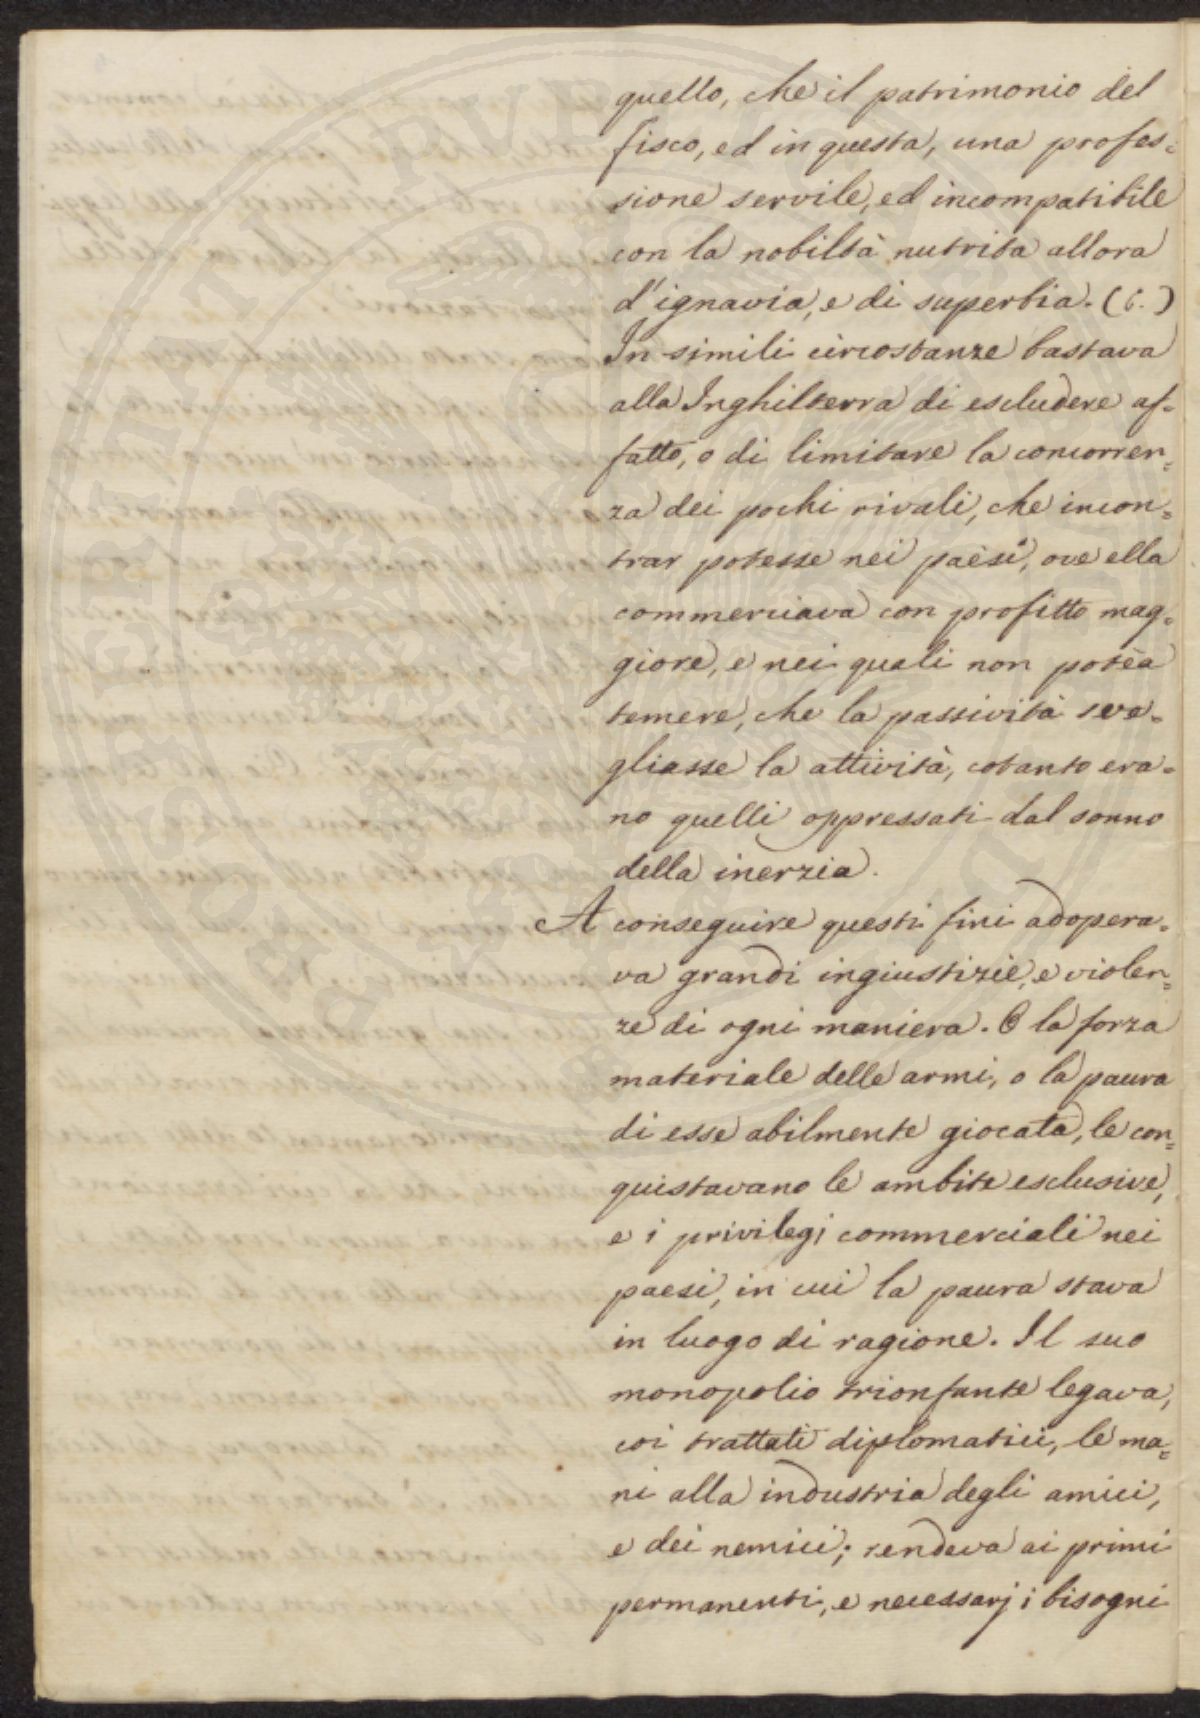 quello, che il patrimonio del
fisco, ed in questa, una profes=
sione servile, ed incompatibile
con la nobiltà nutrita allora
d'ignavia, e di superbia. (6.)
In simili circostanze bastava
alla Inghilterra di escludere af=
fatto, o di limitare la concorren=
za dei pochi rivali, che incon=
trar potesse nei paesi, ove ella
commerciava con profitto mag=
giore, e nei quali non potèa
temere, che la passività sve=
gliasse la attività, cotanto era=
no quelli oppressati dal sonno
della inerzia.
A conseguire questi fini adopera=
va grandi ingiustizie, e violen=
ze di ogni maniera. O la forza
materiale delle armi, o la paura
di esse abilmente giocata, le con=
quistavano le ambite esclusive,
e i privilegi commerciali nei
paesi, in cui la paura stava
in luogo di ragione. Il suo
monopolio trionfante legava,
coi trattati diplomatici, le ma=
ni alla industria degli amici,
e dei nemici; rendeva ai primi
permanenti, e necessarj i bisogni